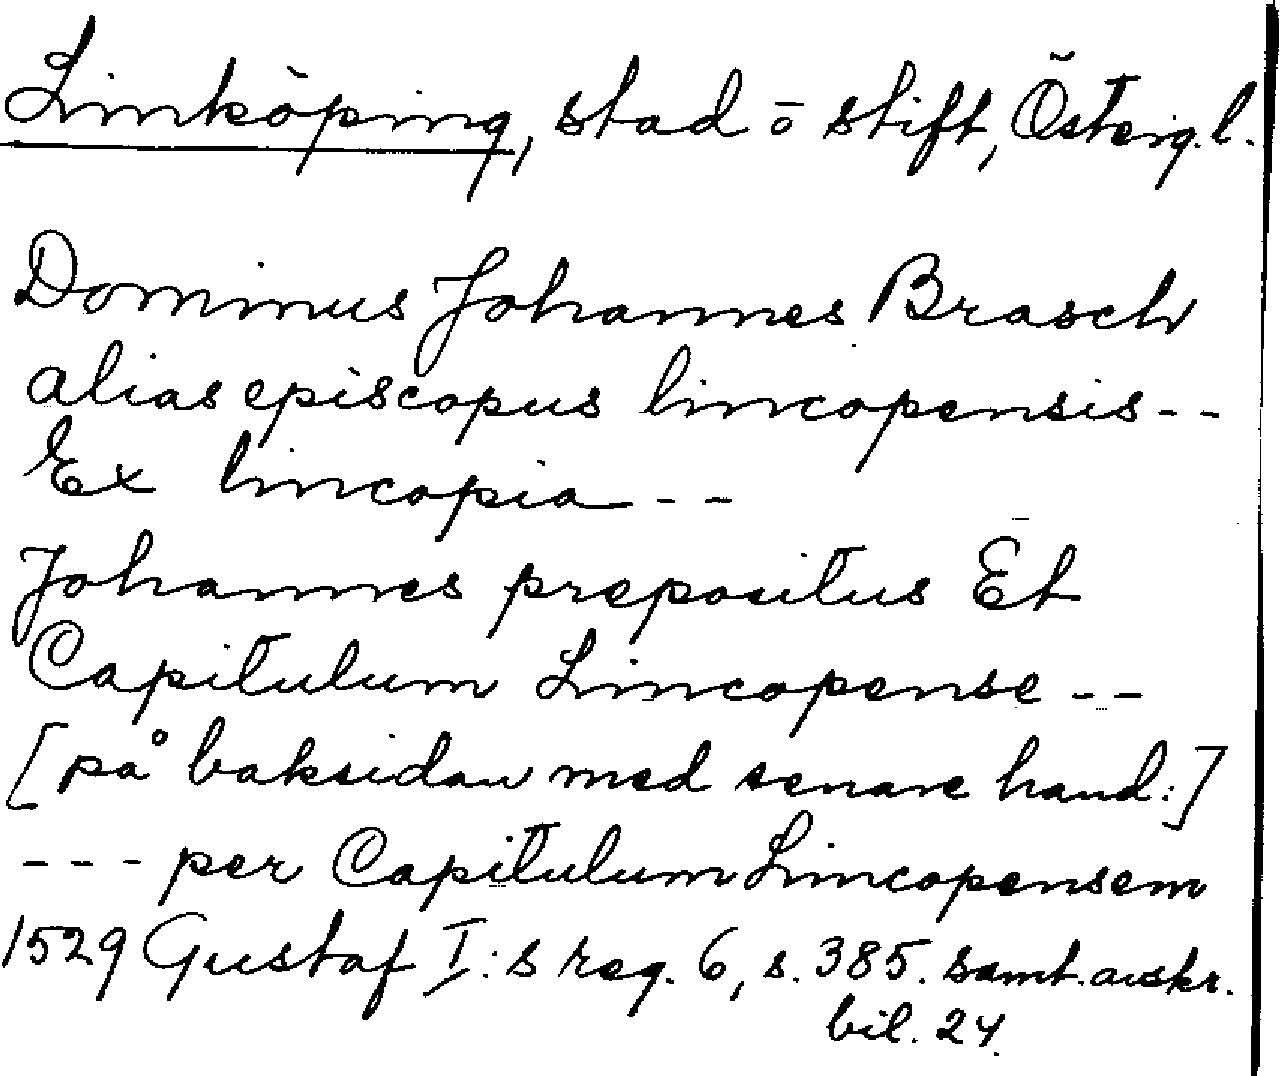 Linköping, stad o stift, Österg. l.
Dominus Johannes Brasch
alias episcopus lincopensis--
Ex lincopia--
Johannes prepositus Et
Capitulum Lincopense--
[på baksidan med senare hand:]
--- per Capitulum Lincopensem
1529 Gustaf I:s reg. 6, s. 385. samt. avskr.
bil. 24.